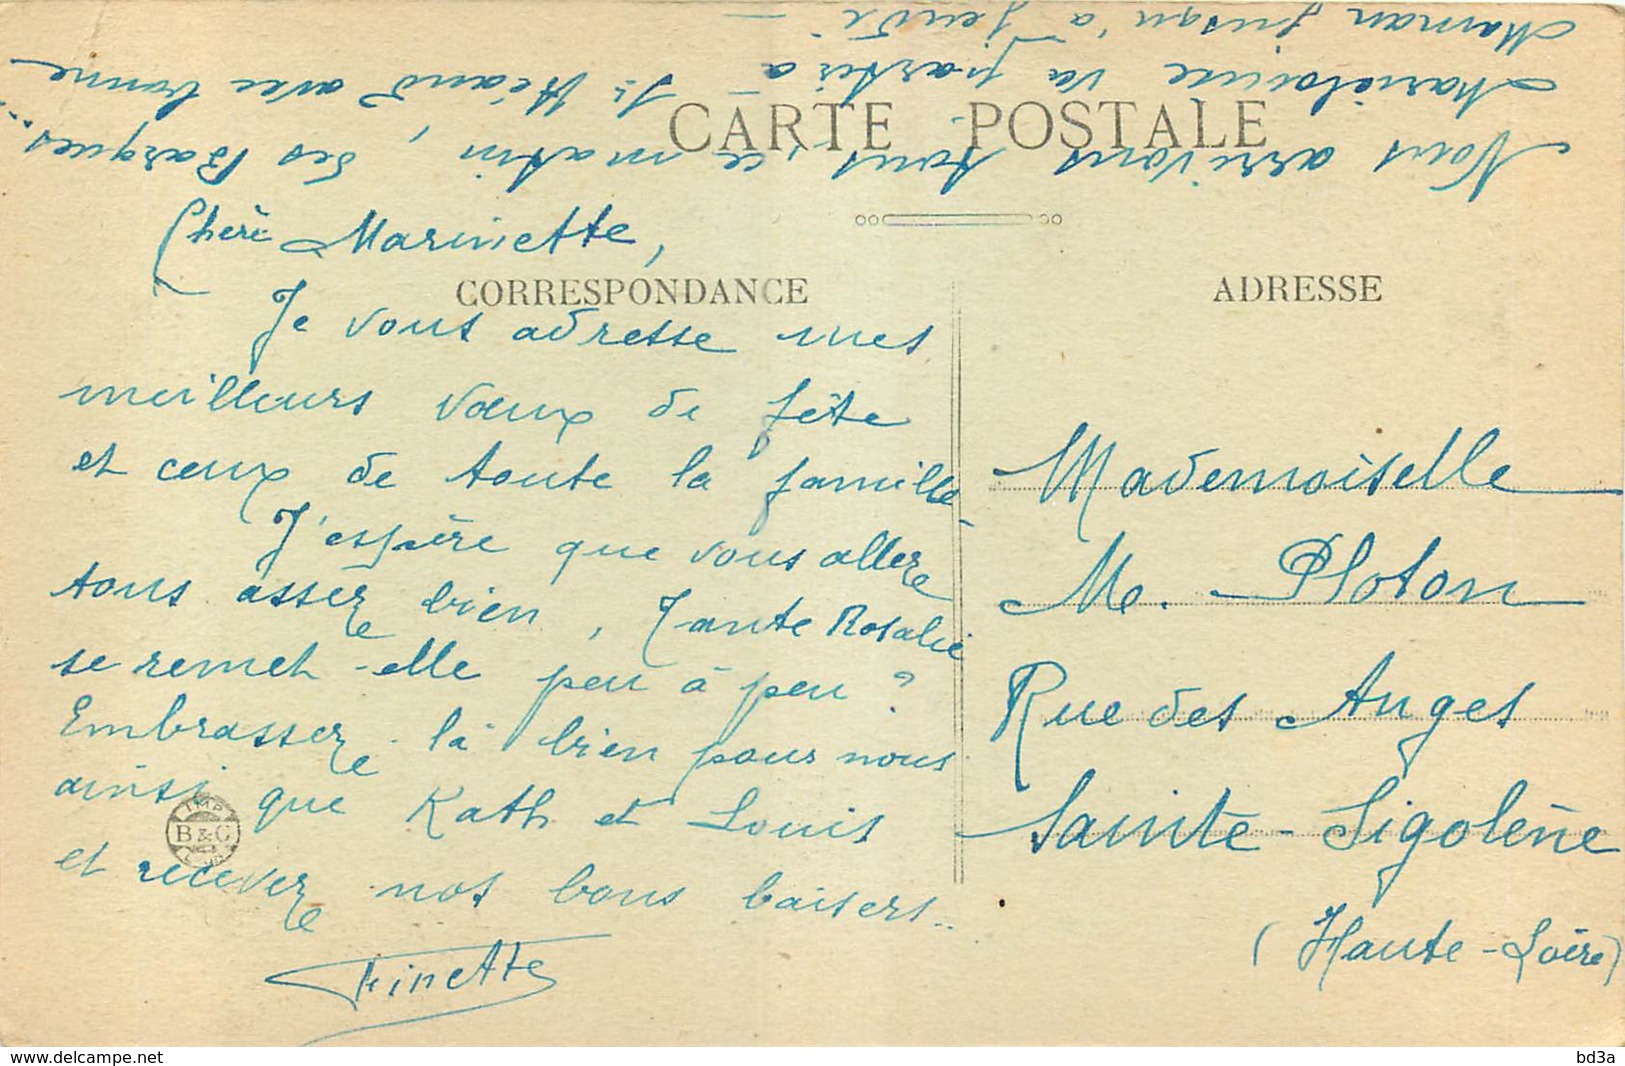 CARTE POSTALE
CORRESPONDANCE
ADRESSE
Chère Marinette,
Je vous adresse mes
meilleurs vœux de fête
et ceux de toute la famille
J'espère que vous allez
tous assez bien, Tante Rosalie
se remet-elle peu à peu ?
Embrassez-la bien pour nous
ainsi que Kath et Louis
et recevez nos bons baisers..
Finette
Nous arrivons tous, ce matin, des Barques...
Marielouise va partir à St Héand avec bonne
Maman jusqu'à Jeudi -
Mademoiselle
M. Ploton
Rue des Anges
Sainte-Sigolène
(Haute-Loire)
IMP
B & C
www.delcampe.net
bd3a